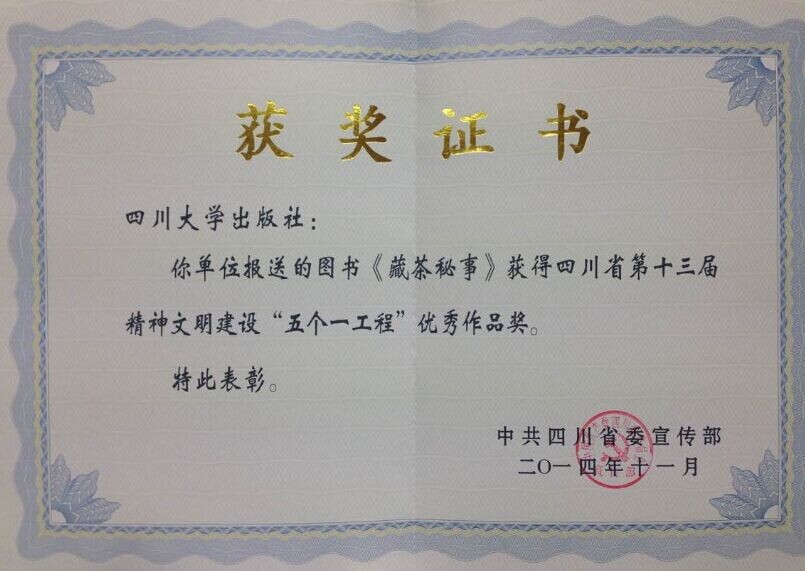 获奖证书
四川大学出版社：
你单位报送的图书《藏茶秘事》获得四川省第十三届
精神文明建设“五个一工程”优秀作品奖。
特此表彰。
中共四川省委宣传部
二〇一四年十一月